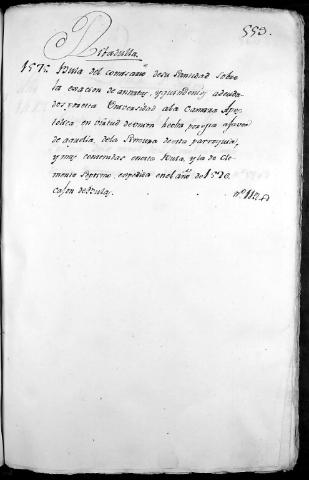 553.
Pitadulla.
157 Bula del comisario de su Santidad sobre
la exacion de annatas, y quindenios adeuda
dos, por esta Universidad a la Camara Apo
tolica en virtud de union hecha por su a favor
de aquella, de la Primera de esta parroquia,
y mas contenidas en esta Bula, y la de Cle
mente Septimo, expedida en el año de 1526.
Caxon de Bulas. nº. 112